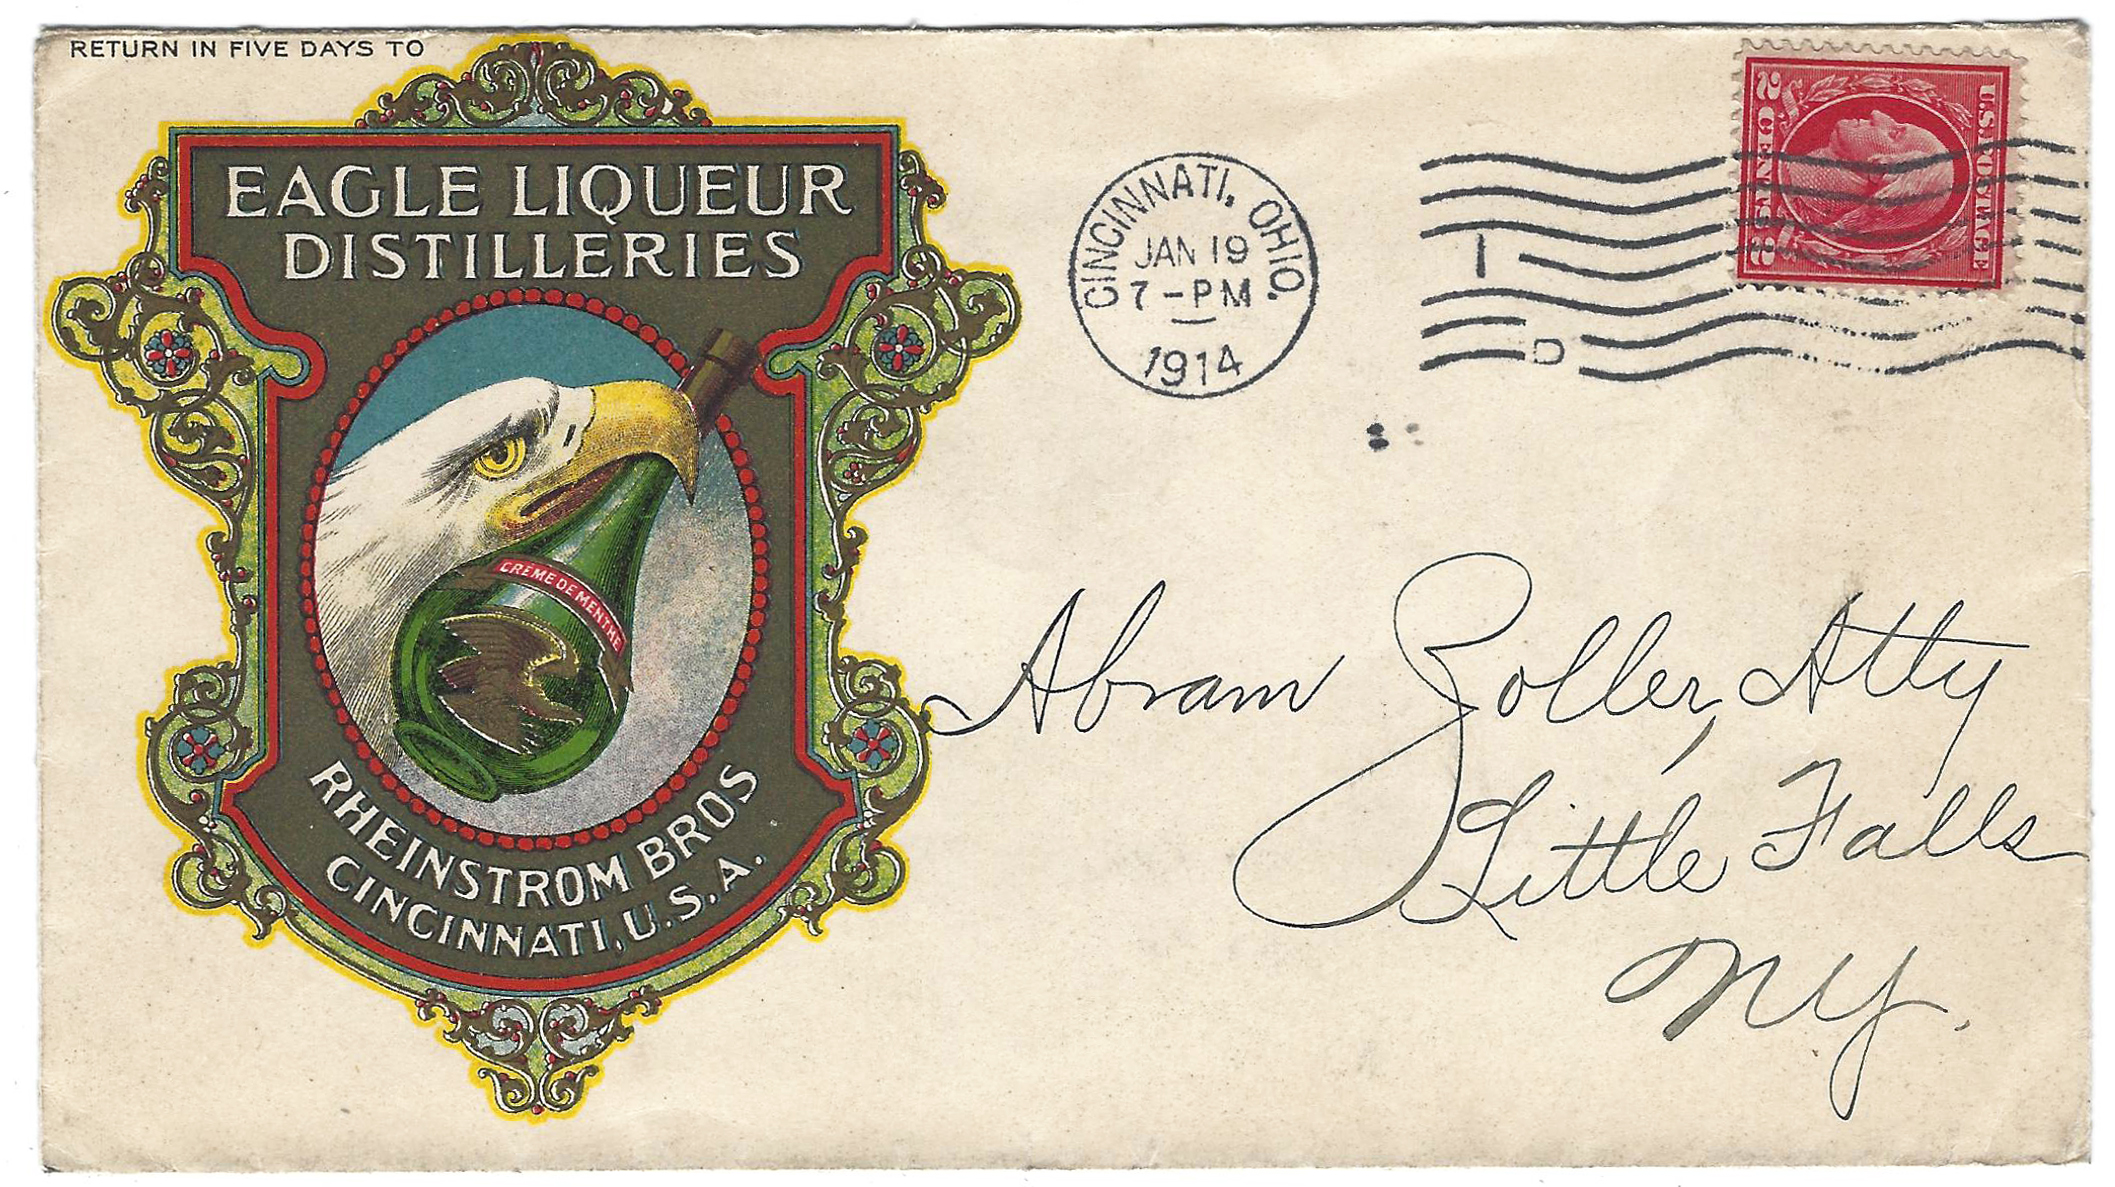 RETURN IN FIVE DAYS TO
EAGLE LIQUEUR
DISTILLERIES
CREME DE MENTHE
RHEINSTROM BROS
CINCINNATI, U.S.A.
CINCINNATI, OHIO.
JAN 19
7-PM
1914
1
D
U.S. POSTAGE
2 CENTS 2
Abram Zoller, Atty
Little Falls
NY.